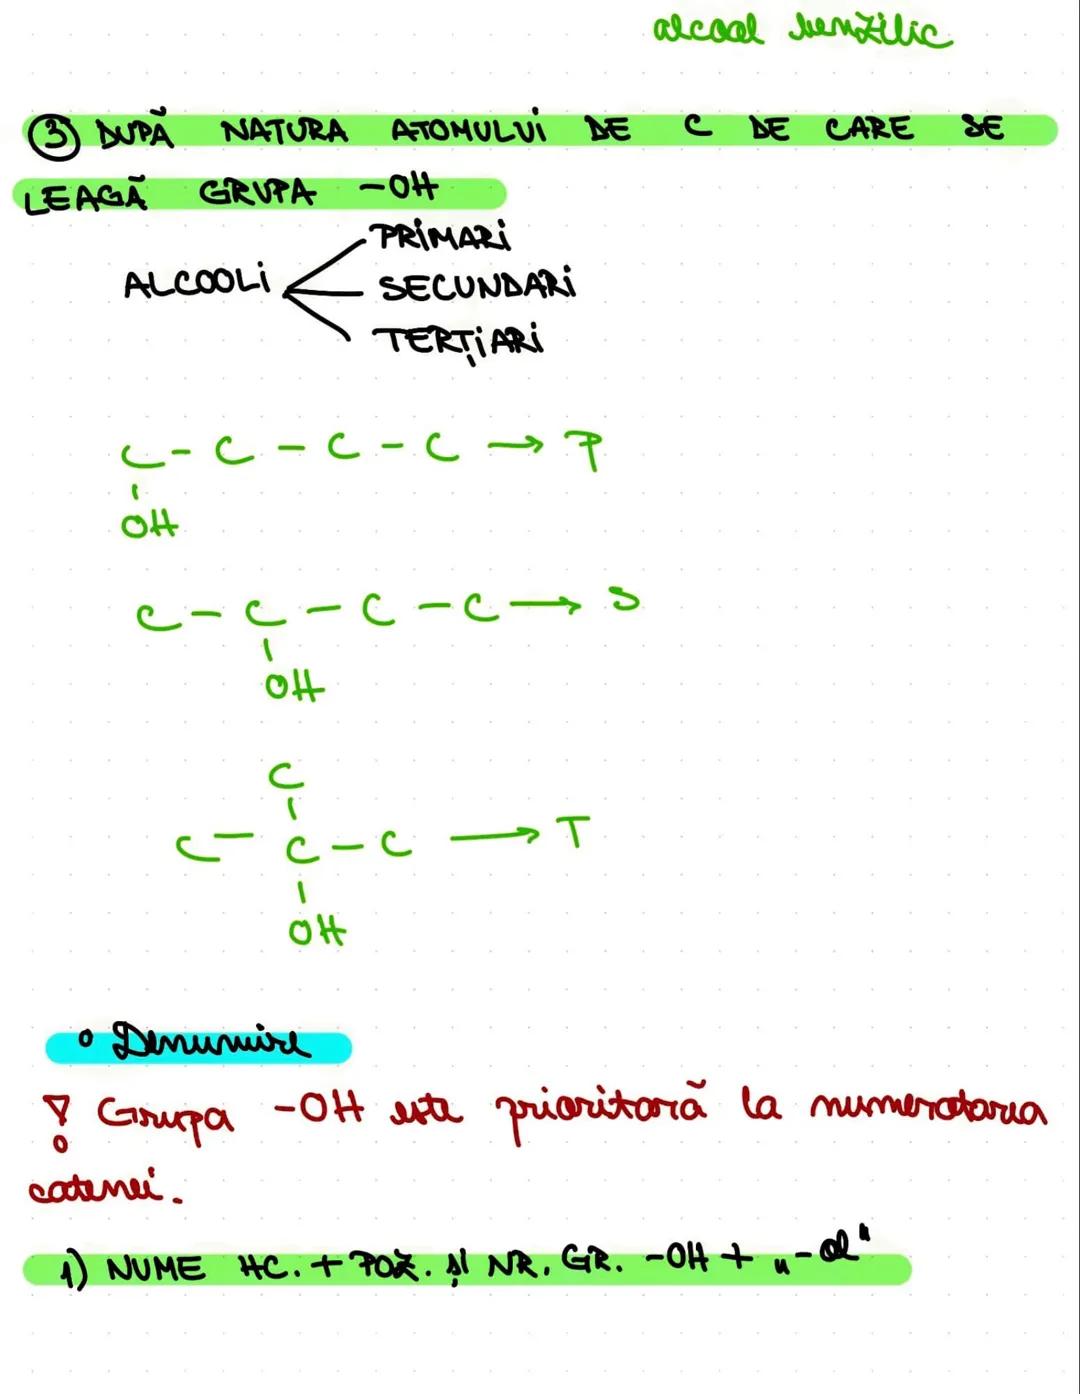 alcool benzilic
③ DUPĂ NATURA ATOMULUI DE C DE CARE SE
LEAGĂ GRUPA -OH
PRIMARI
ALCOOLI
SECUNDARI
TERȚIARI
C - C - C - C → P
OH
C - C - C - C → S
OH
C
C - C - C → T
OH
• Denumire
! Grupa -OH este prioritară la numerotarea
catenei.
1) NUME HC. + POZ. ȘI NR. GR. -OH + „-ol"